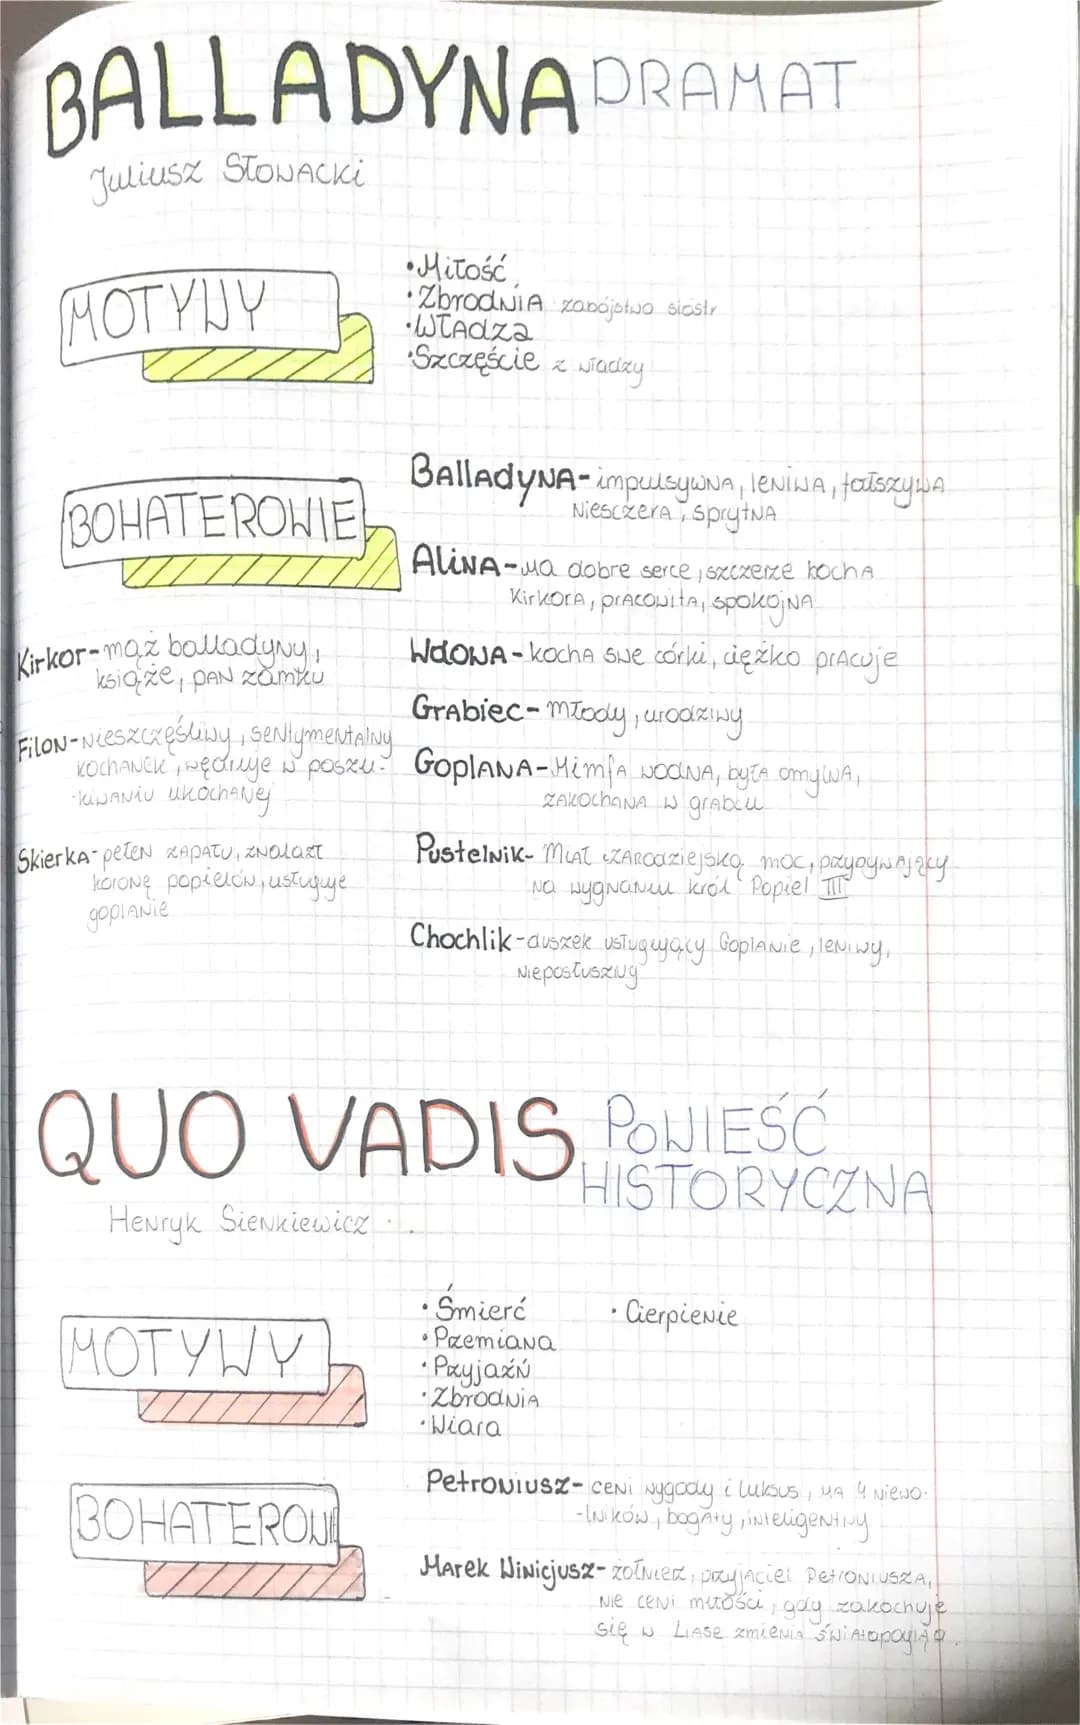 BALLADYNA DRAMAT
Juliusz Słowacki
MOTYWY
•Miłość
•Zbrodnia zabójstwo siostr
•Władza
•Szczęście z władzy
BOHATEROWIE
Balladyna-impulsywna, leniwa, fałszywa
niesczera, sprytna
Alina-ma dobre serce, szczerze kocha
Kirkora, pracowita, spokojna
Wdowa-kocha swe córki, ciężko pracuje
Grabiec-młody, urodziwy
Goplana-Nimfa wodna, była omylna,
zakochana w grabcu
Pustelnik-Miał czarodziejską moc, przybywający
na wygnaniu król Popiel III
Chochlik-duszek usługujący Goplanie, leniwy,
nieposłuszny
Kirkor-mąż balladyny,
książe, pan zamku
Filon-nieszczęśliwy, sentymentalny
kochanek, wędruje w poszu-
-kiwaniu ukochanej
Skierka-pełen zapału, znalazł
koronę popielów, usługuje
goplanie
QUO VADIS POWIEŚĆ
HISTORYCZNA
Henryk Sienkiewicz
MOTYWY
•Śmierć •Cierpienie
•Przemiana
•Przyjaźń
•Zbrodnia
•Wiara
BOHATEROWI
Petroniusz-ceni wygody i luksus, ma 4 niewo-
-lników, bogaty, inteligentny
Marek Winicjusz-żołnierz, przyjaciel Petroniusza,
nie ceni miłości, gdy zakochuje
się w Liase zmienia światopogląd.